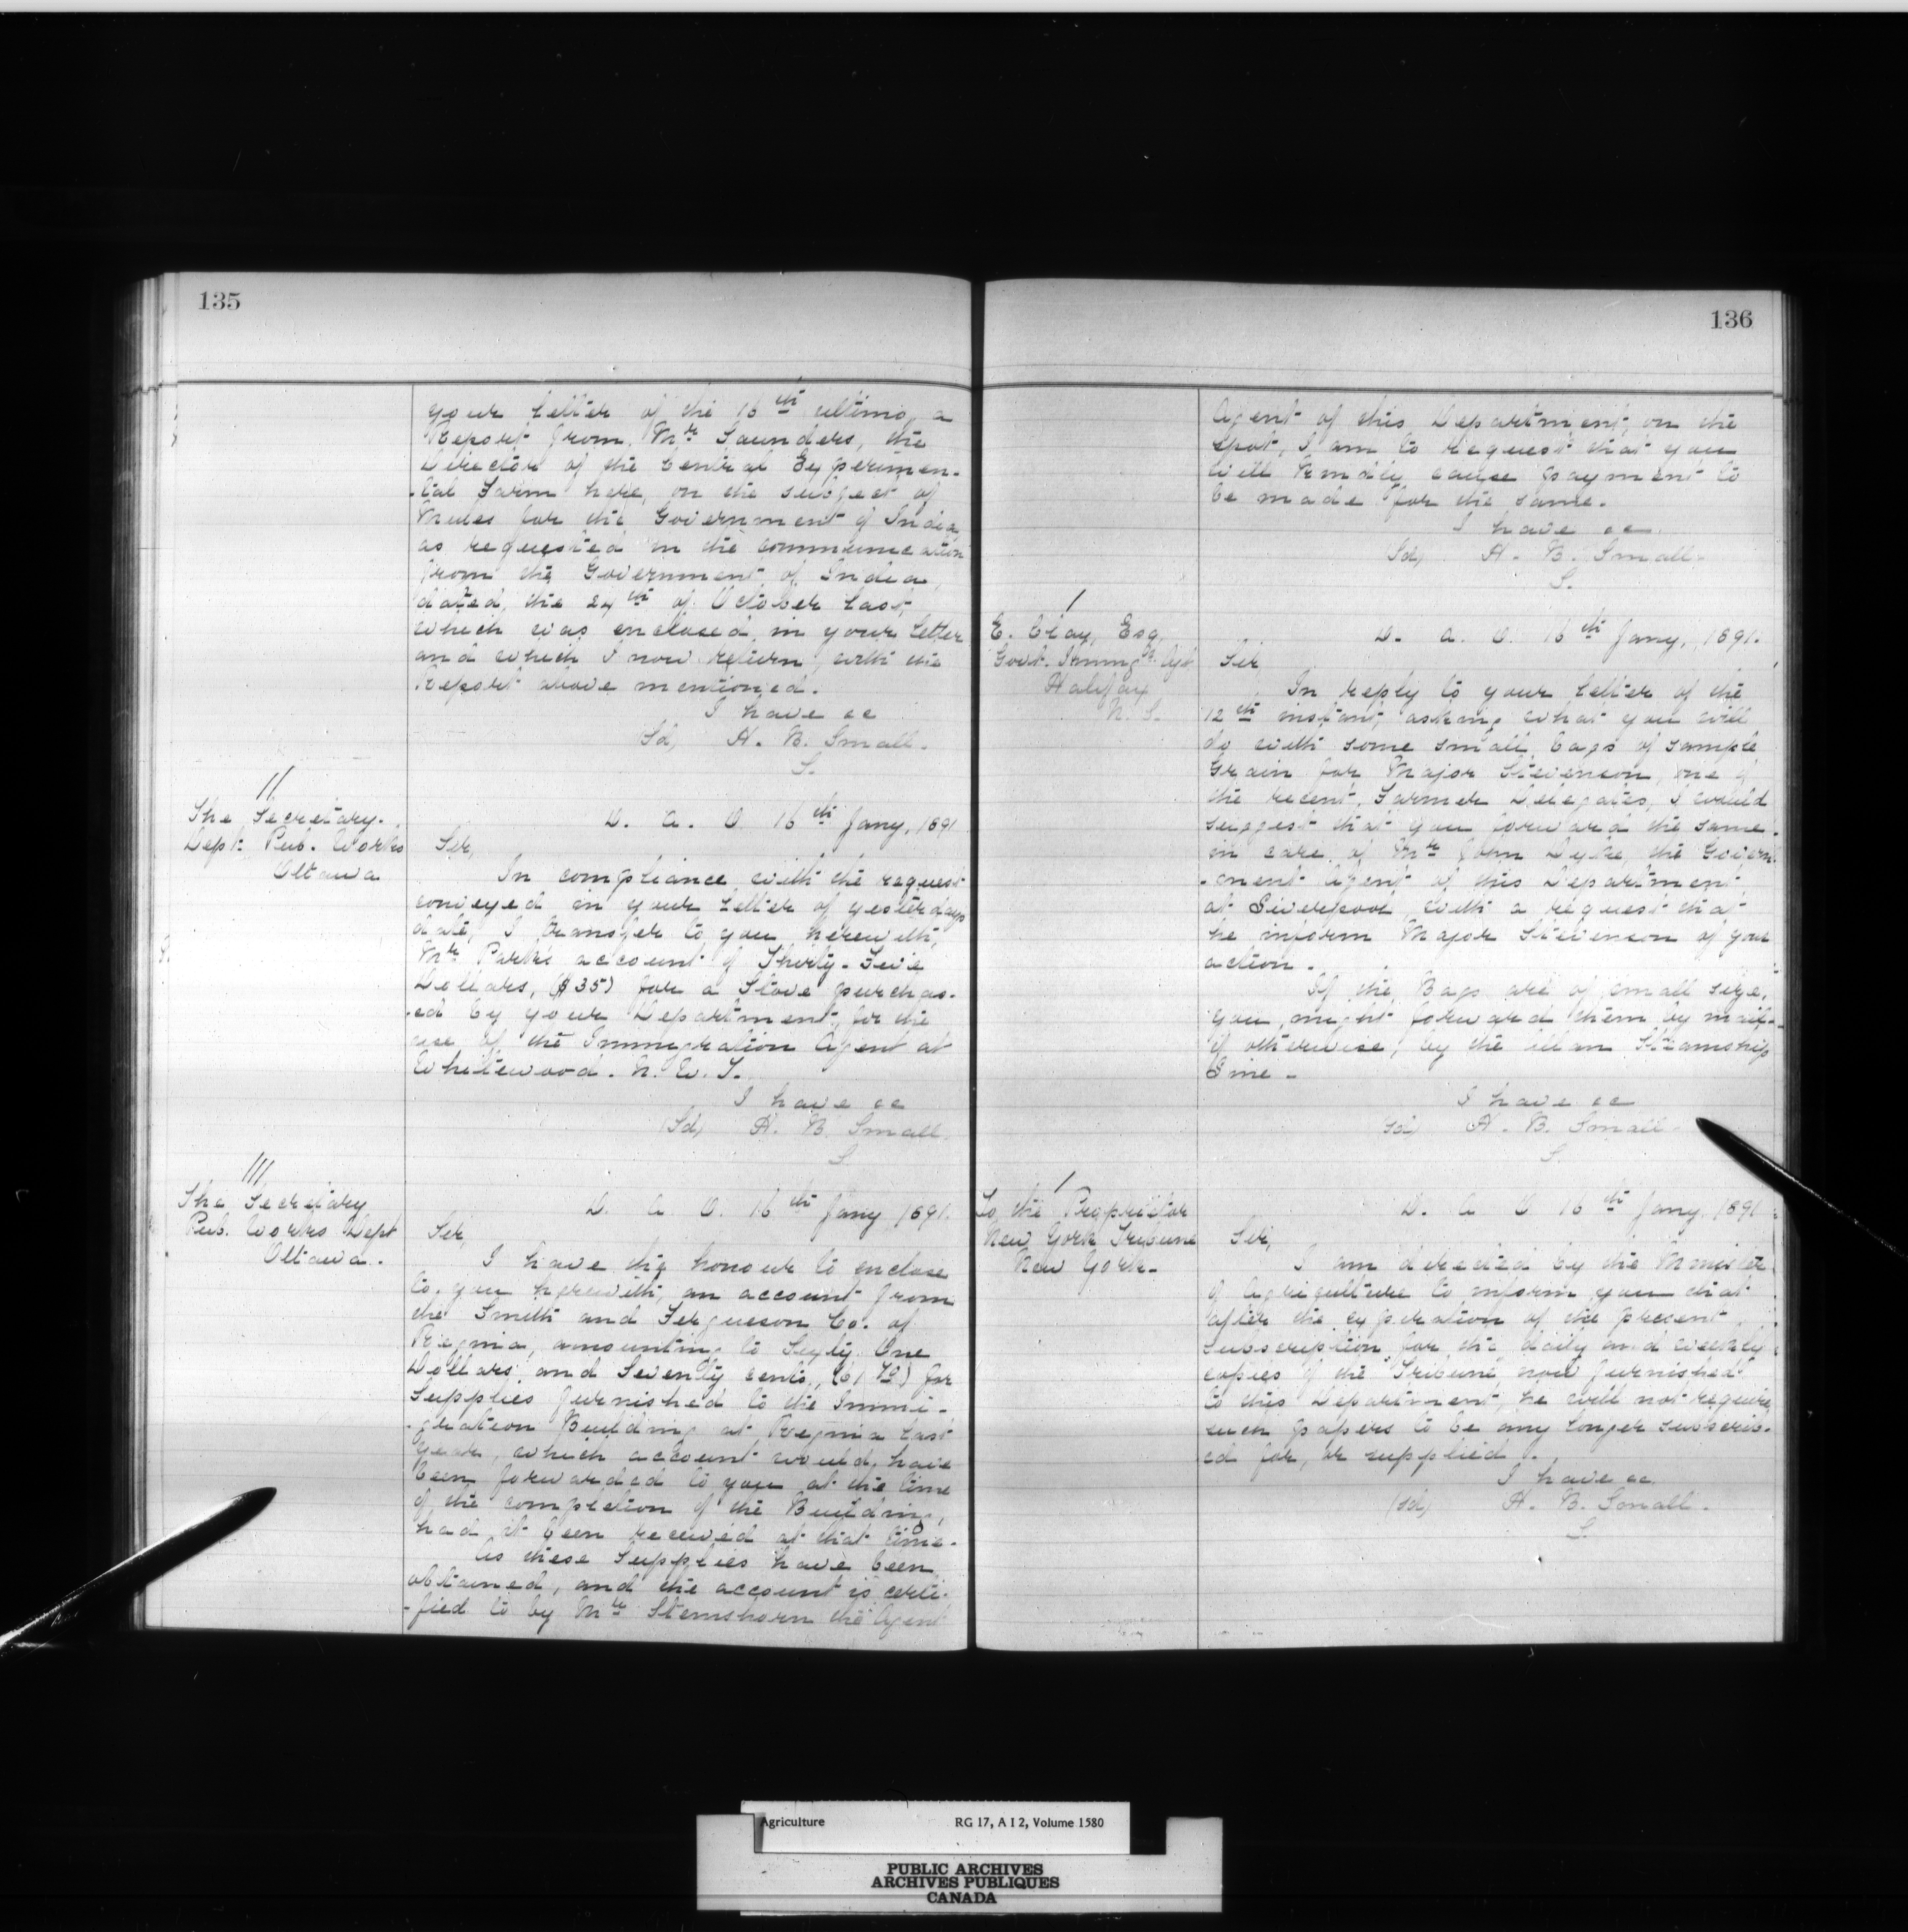 135
your letter of the 16th ultimo, a
Report from Mr Saunders, the
Director of the Central Experimen-
-tal Farm here, on the subject of
Mules for the Government of India,
as requested in the communication
from the Government of India,
dated, the 24th of October last,
which was enclosed, in your letter
and which I now return, with the
Report above mentioned.
I have &c
Sd, H. B. Small.
S.
11
The Secretary.
Dept. Pub. Works
Ottawa
D. A. O 16th Jany, 1891
Sir,
In compliance with the request
conveyed in your letter of yesterdays
date, I transfer to you herewith,
Mr Parks account of Thirty-Five
Dollars, ($35) for a Stove purchas-
-ed by your Department, for the
use of the Immigration Agent at
Whitewood. N. W. T.
I have &c
(Sd) H. B Small.
S
111
The Secretary
Pub. Works Dept
Ottawa.
D. A O. 16th Jany 1891.
Sir,
I have the honour to enclose
to you herewith, an account from
the Smith and Fergusson Co. of
Regina, amounting to Sixty One
Dollars, and Seventy cents, (61 70) for
Supplies furnished to the Immi-
-gration Building at Regina last
year, which account would, have
been forwarded to you at the time
of the completion of the Building,
had it been received at that time.
As these Supplies have been
obtained, and the account is certi-
-fied to by Mr Stemshorn the Agent
136
Agent of this Department, on the
spot, I am to request that you
will kindly cause payment to
be made for the same.
I have &c
(Sd) H. B. Small.
S.
1
E. Clay, Esq,
Govt. Immign. Agt
Halifax
N. S.
D. A. O. 16th Jany, 1891.
Sir
In reply to your letter of the
12th instant, asking what you will
do with some small bags of sample
Grain for Major Stevenson, one of
the recent, Farmer Delegates, I would
suggest that you forward the same
in care of Mr John Dyke, the Govern-
-ment Agent of this Department,
at Liverpool, with a request that
he inform Major Stevenson of your
action.
If the Bags are of small size,
you might forward them by mail-
if otherwise, by the Allan Steamship
Line-
I have &c
Sd) H. B. Small.
S.
1
To the Proprietor
New York Tribune
New York-
D. A O 16th Jany 1891
Sir,
I am directed by the Minister
of Agriculture to inform you that
after the expiration of the present
subscription for the daily and weekly
copies of the Tribune, now furnished
to this Department, he will not require
such papers to be any longer subscrib-
ed for, or supplied.
I have &c.
(Sd) H. B. Small.
S.
Agriculture RG 17, A I 2, Volume 1580
PUBLIC ARCHIVES
ARCHIVES PUBLIQUES
CANADA